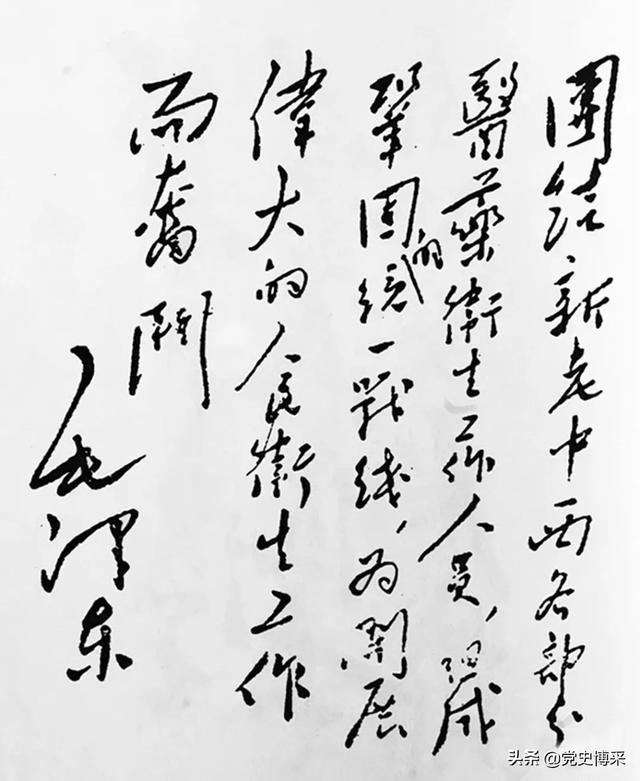 團结新老中西各部分
醫藥衛生工作人員，组成
鞏固的统一戰线，为開展
偉大的人民衛生工作
而奮鬥
毛泽东
头条 @党史博采